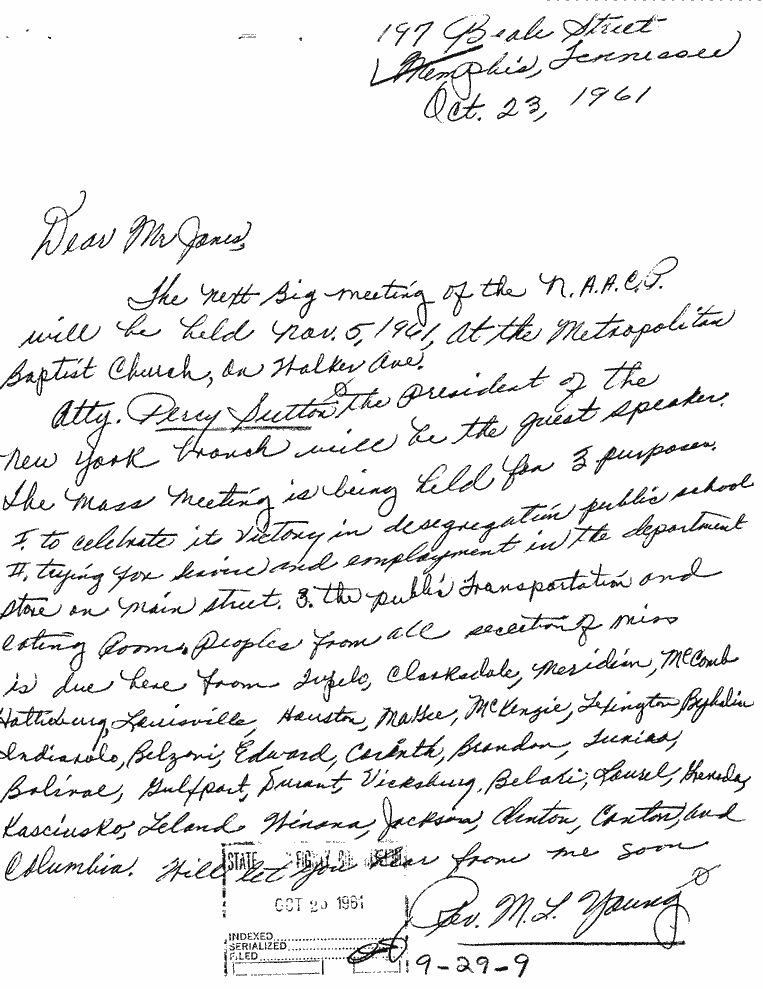 197 Beale Street
Memphis, Tennessee
Oct. 23, 1961
Dear Mr Jones,
The next Big meeting of the N.A.A.C.P.
will be held Nov. 5, 1961, at the Metropolitan
Baptist Church, on Walker Ave.
Atty. Percy Sutton the president of the
New York branch will be the guest speaker.
The mass meeting is being held for 3 purposes.
I. to celebrate its victory in desegregation public school
II. trying for service and employment in the department
store on main street. 3. the public transportation and
eating rooms, peoples from all secetion of miss
is due here from Tupelo, Clarksdale, Meridian, McComb
Hattisburg, Louisville, Houston, McKenzie, Lexington, Byhalia
Indianolo, Belzoni, Edward, Corinth, Brandon, Tunica,
Bolivae, Gulfport, Durant, Vicksburg, Laurel, Grenada,
Kasciusko, Leland Winona, Jackson, Clinton, Canton, and
Columbia. Will let you hear from me soon
Rev. M. L. Young
STATE
OCT 25 1961
INDEXED
SERIALIZED
FILED
9-29-9